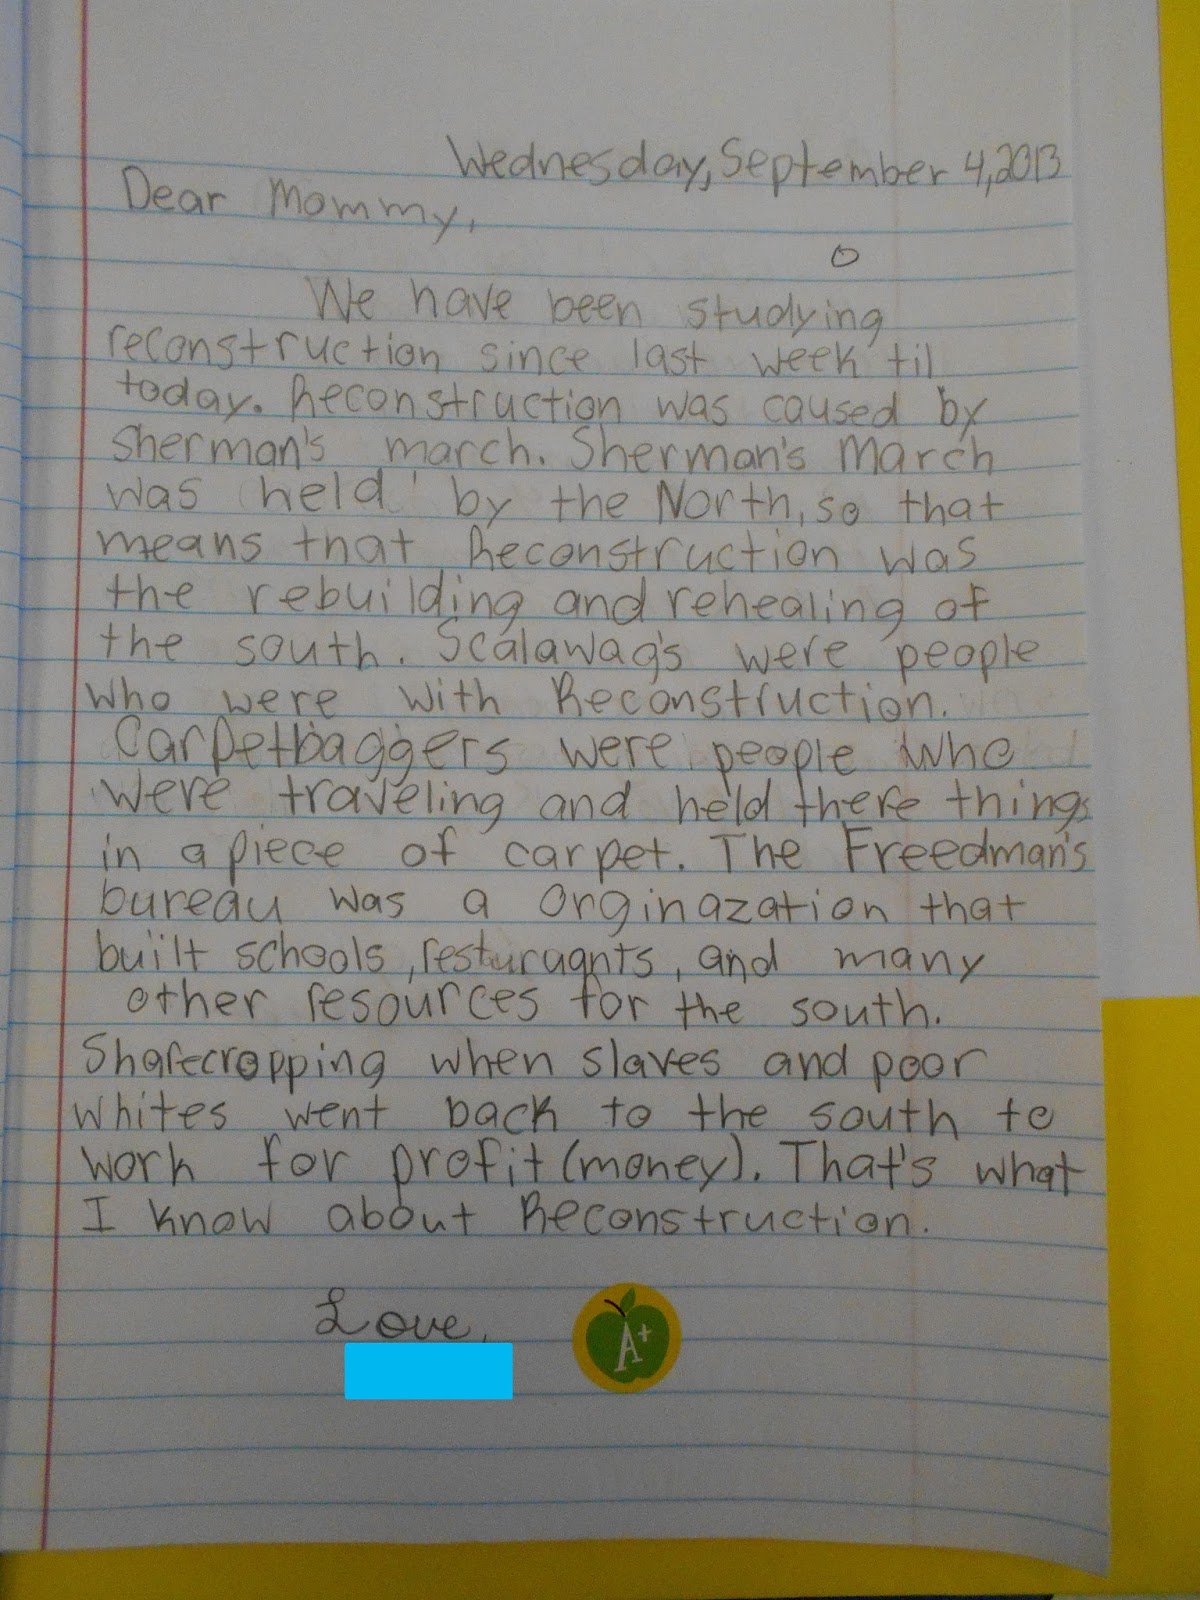 Wednesday, September 4, 2013
Dear Mommy,
We have been studying
reconstruction since last week til
today. Reconstruction was caused by
Sherman's march. Sherman's March
was held by the North, so that
means that Reconstruction was
the rebuilding and rehealing of
the south. Scalawag's were people
who were with Reconstruction.
Carpetbaggers were people who
were traveling and held there things
in a piece of carpet. The Freedman's
bureau was a orginazation that
built schools, resturagnts, and many
other resources for the south.
Sharecropping when slaves and poor
whites went back to the south to
work for profit (money). That's what
I know about Reconstruction.
Love,
A+